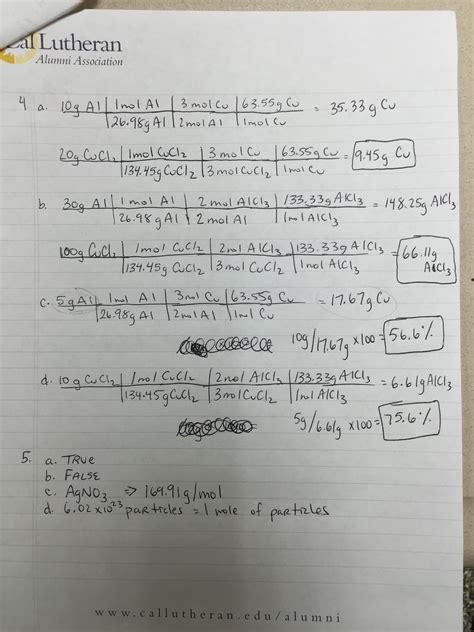 Cal Lutheran
Alumni Association
4 a. 10g Al | 1mol Al | 3 mol Cu | 63.55g Cu = 35.33 g Cu
| 26.98g Al | 2mol Al | 1mol Cu
20g CuCl2 | 1mol CuCl2 | 3 mol Cu | 63.55g Cu = 9.45g Cu
| 134.45g CuCl2 | 3 mol CuCl2 | 1mol Cu
b. 30g Al | 1 mol Al | 2 mol AlCl3 | 133.33g AlCl3 = 148.25g AlCl3
| 26.98 g Al | 2 mol Al | 1mol AlCl3
100g CuCl2 | 1mol CuCl2 | 2mol AlCl3 | 133.33g AlCl3 = 66.11g AlCl3
| 134.45g CuCl2 | 3 mol CuCl2 | 1mol AlCl3
c. 5g Al | 1mol Al | 3mol Cu | 63.55g Cu = 17.67g Cu
| 26.98g Al | 2mol Al | 1mol Cu
10g/17.67g x100 = 56.6%
d. 10g CuCl2 | 1mol CuCl2 | 2mol AlCl3 | 133.33g AlCl3 = 6.61g AlCl3
| 134.45g CuCl2 | 3mol CuCl2 | 1mol AlCl3
5g/6.61g x100 = 75.6%
5. a. TRUE
b. FALSE
c. AgNO3 => 169.91g/mol
d. 6.02x10^23 particles = 1 mole of particles
www.callutheran.edu/alumni